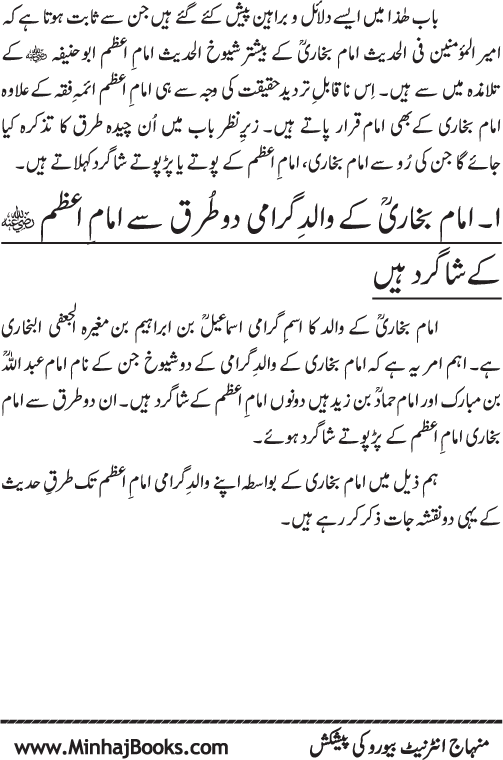 باب ھٰذا میں ایسے دلائل و براہین پیش کئے گئے ہیں جن سے ثابت ہوتا ہے کہ
امیر المؤمنین فی الحدیث امام بخاریؒ کے بیشتر شیوخ الحدیث امامِ اعظم ابو حنیفہ رضی اللہ عنہ کے
تلامذہ میں سے ہیں۔ اِس ناقابلِ تردید حقیقت کی وجہ سے ہی امامِ اعظم ائمہِ فقہ کے علاوہ
امام بخاری کے بھی امام قرار پاتے ہیں۔ زیرِ نظر باب میں اُن چیدہ طرق کا تذکرہ کیا
جائے گا جن کی رُو سے امام بخاری، امامِ اعظم کے پوتے یا پڑپوتے شاگرد کہلاتے ہیں۔
۱۔ امام بخاریؒ کے والدِ گرامی دو طُرق سے امامِ اعظم رضی اللہ عنہ
کے شاگرد ہیں
امام بخاریؒ کے والد کا اسمِ گرامی اسماعیلؒ بن ابراہیم بن مغیرہ الجعفی البخاری
ہے۔ اہم امر یہ ہے کہ امام بخاری کے والدِ گرامی کے دو شیوخ جن کے نام امام عبد اللہؒ
بن مبارک اور امام حمادؒ بن زید ہیں دونوں امامِ اعظم کے شاگرد ہیں۔ ان دو طرق سے امام
بخاری امامِ اعظم کے پڑپوتے شاگرد ہوئے۔
ہم ذیل میں امام بخاری کے بواسطہ اپنے والدِ گرامی امامِ اعظم تک طرقِ حدیث
کے یہی دو نقشہ جات ذکر کر رہے ہیں۔
منہاج انٹرنیٹ بیورو کی پیشکش www.MinhajBooks.com